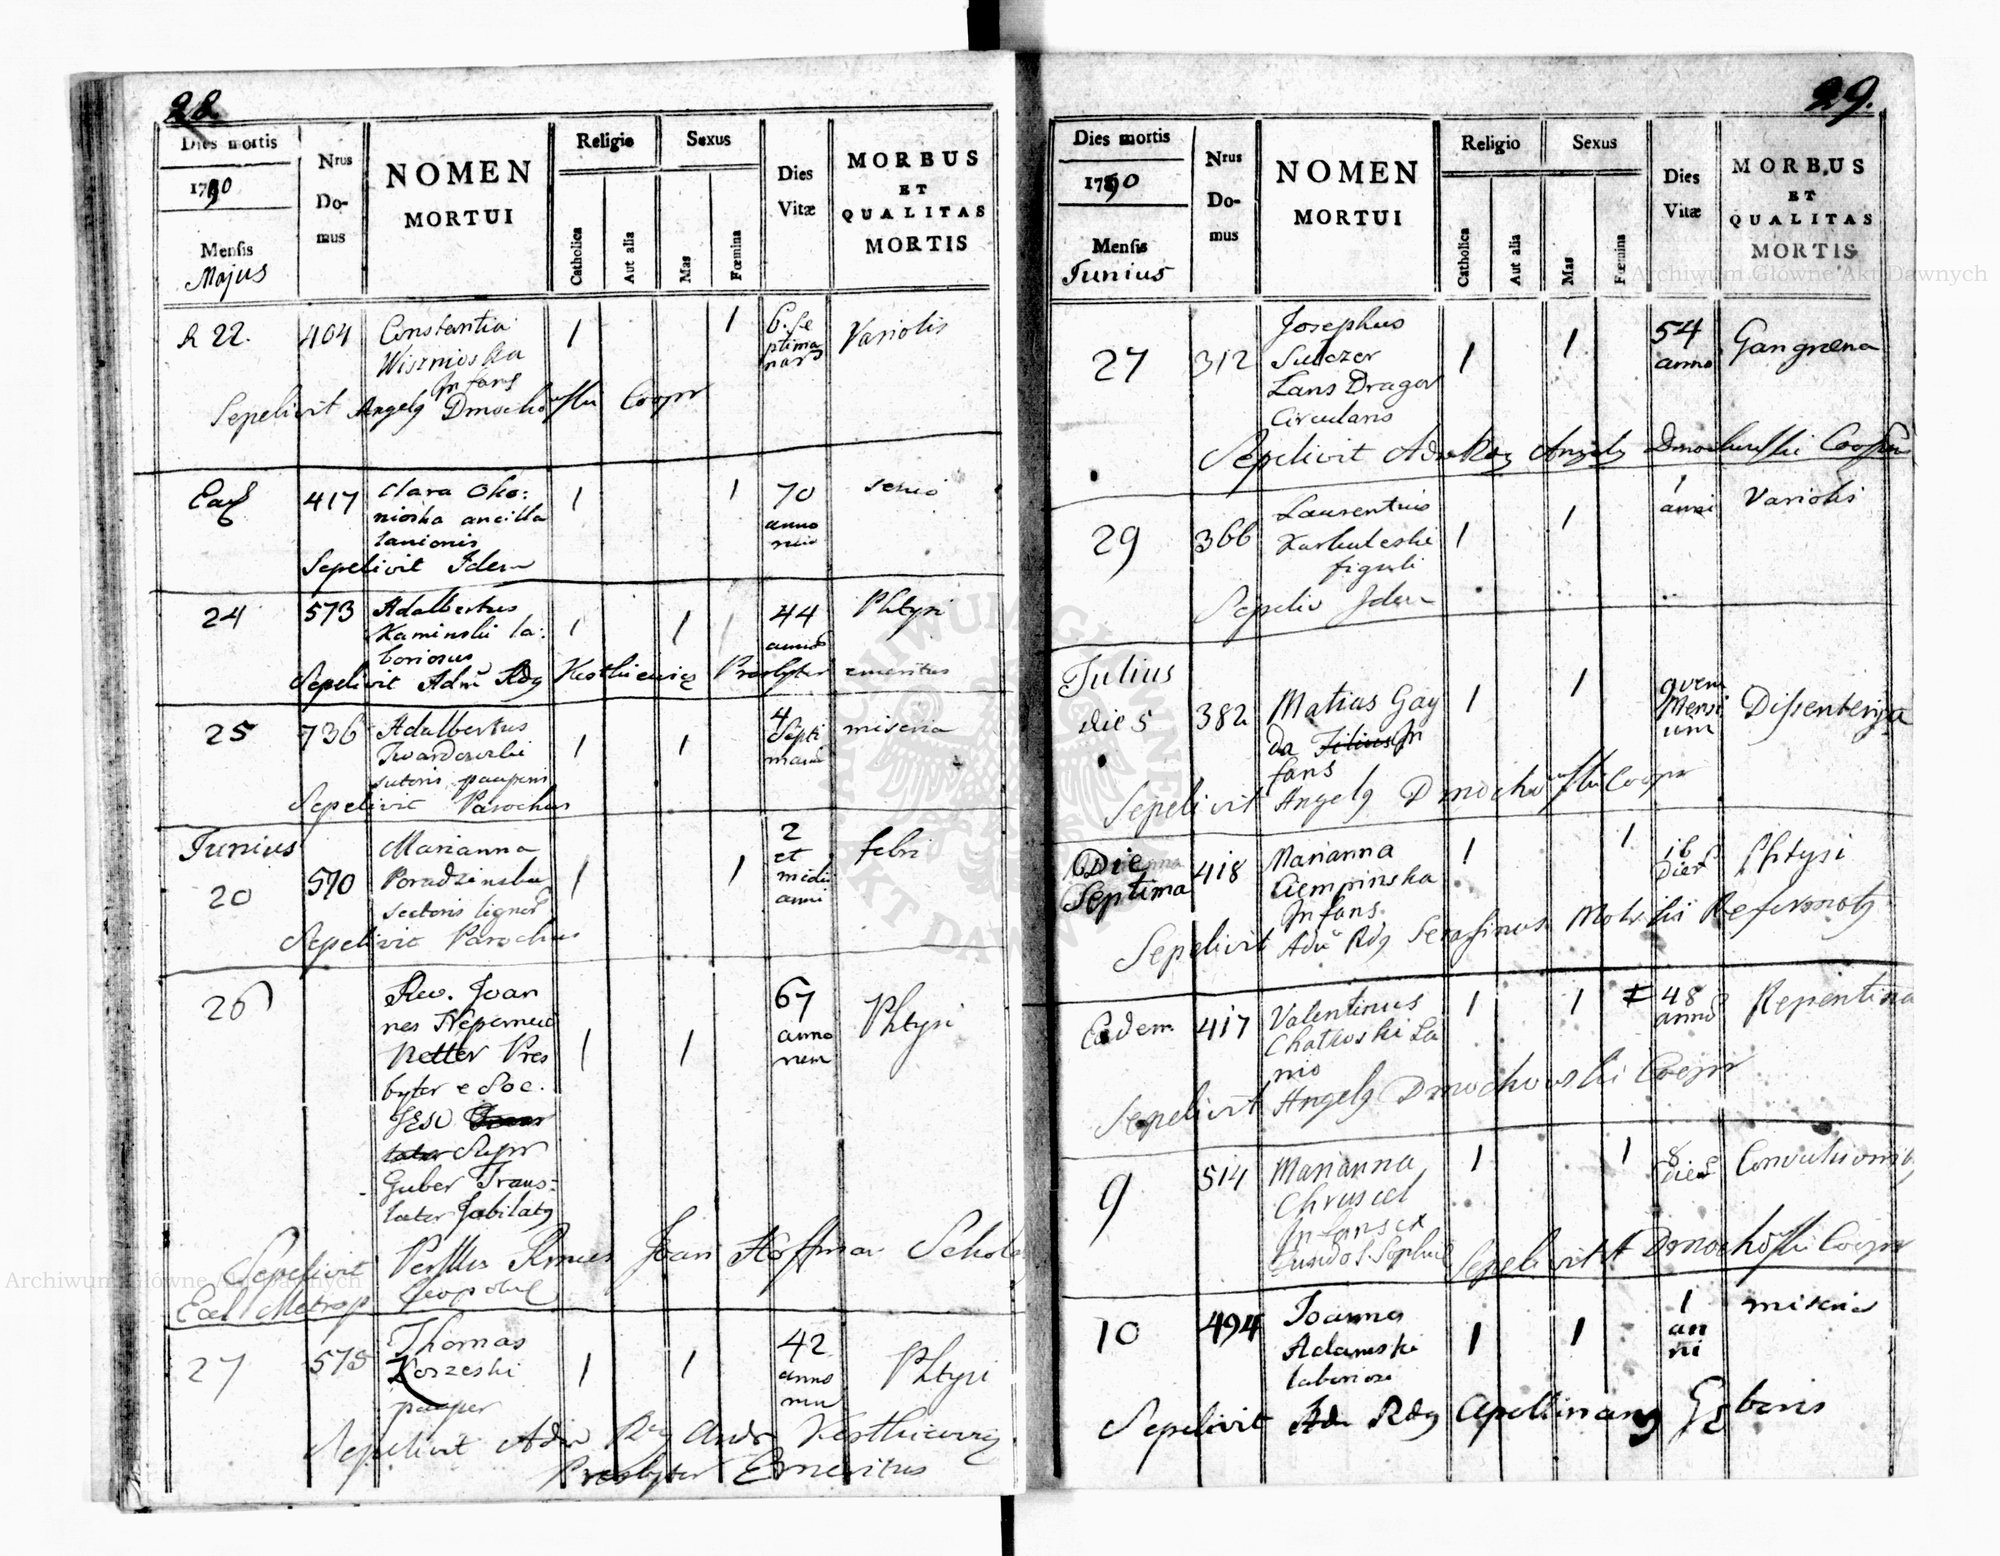 28.
Dies mortis
1790
Mensis
Majus
Nrus
Do-
mus
NOMEN
MORTUI
Religio
Catholica
Aut alia
Sexus
Mas
Fœmina
Dies
Vitæ
MORBUS
ET
QUALITAS
MORTIS
22.
404
Constantia
Wisznioska
Infans
1
1
6. Se
ptima
nar
Variolis
Sepelivit Angelg Dmochowski Coopr
417
Clara Oko:
nioska ancilla
lanionis
1
1
70
anno
senio
Sepelivit Idem
24
573
Adalbertus
Kaminski la:
boriosus
1
1
44
Phtysi
Sepelivit Adm Rdg Kosthiewicz Presbyter emeritus
25
736
Adalbertus
Twardowski
sutoris pauperis
1
1
4
Septi
miseria
Sepelivit Parochus
Junius
20
570
Marianna
Poradzinska
sectoris lignor
1
1
2
et
medii
anni
febri
Sepelivit Parochus
26
Rev. Joan
nes Nepomuc
Netter Pres
byter e Soc.
JESU
Supr
Guber Trans=
lator Jubilatg
1
1
67
anno
rum
Phtysi
Sepelivit Joan Hoffman Schol
Eccl Metrop Leopol
27
575
Thomas
Korzeski
pauper
1
1
42
anno
rum
Phtysi
Sepelivit Adm Rdg Andr Kosthiewicz
Presbyter Emeritus
29.
Dies mortis
1790
Mensis
Junius
Nrus
Do-
mus
NOMEN
MORTUI
Religio
Catholica
Aut alia
Sexus
Mas
Fœmina
Dies
Vitæ
MORBUS
ET
QUALITAS
MORTIS
27
312
Josephus
Sulczer
Lans Dragor
Circularis
1
1
54
anno
Gangrena
Sepelivit Adm Rdg Angelg Dmochowski Coopr
29
366
Laurentius
Karkuleski
figuli
1
1
1
anni
Variolis
Sepeliv Idem
Julius
die 5
382
Matias Gay
da Filius In
fans
1
1
Mensi
um
Dissenteria
Sepelivit Angelg Dmochowski Coopr
Die
Septima
418
Marianna
Ciempinska
Infans
1
1
16
Dier
Phtysi
Sepelivit Adm Rdg Serafinus Reformatg
Eadem
417
Valentinus
Chatkoski La
nio
1
1
48
anno
Repentina
Sepelivit Angelg Dmochowski Coopr
9
514
Marianna
Chruscel
Infans ex
1
1
8
dier
Convulsionib
Sepelivit A Dmochowski Coopr
10
494
Joannes
Adamski
laboriosi
1
1
1
an
ni
miseria
Sepelivit Adm Rdg Apollinarg
Archiwum Główne Akt Dawnych
Archiwum Główne Akt Dawnych
ARCHIWUM GŁÓWNE AKT DAWNYCH